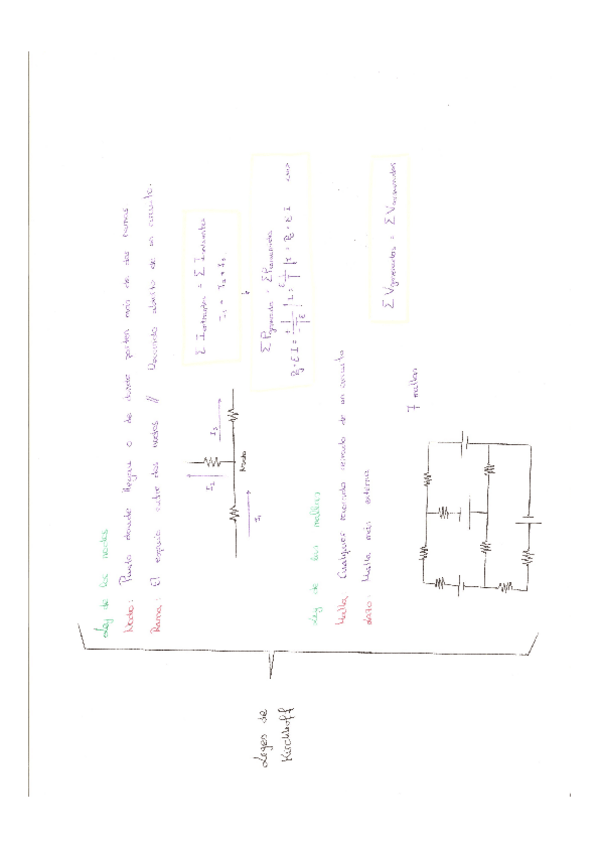 Leyes de
Kirchhoff
Ley de los nodos
Nodo: Punto donde llegan o de donde parten más de dos ramas
Rama: El espacio entre dos nodos // Recorrido abierto de un circuito.
I₁
I₂
I₃
Nodo
Σ I entrantes = Σ I salientes
I₁ = I₂ + I₃
Σ P generada = Σ P consumida
Ley de las mallas
Malla: Cualquier recorrido cerrado de un circuito
Malla más externa
Σ V generados = Σ V consumidos
7 mallas